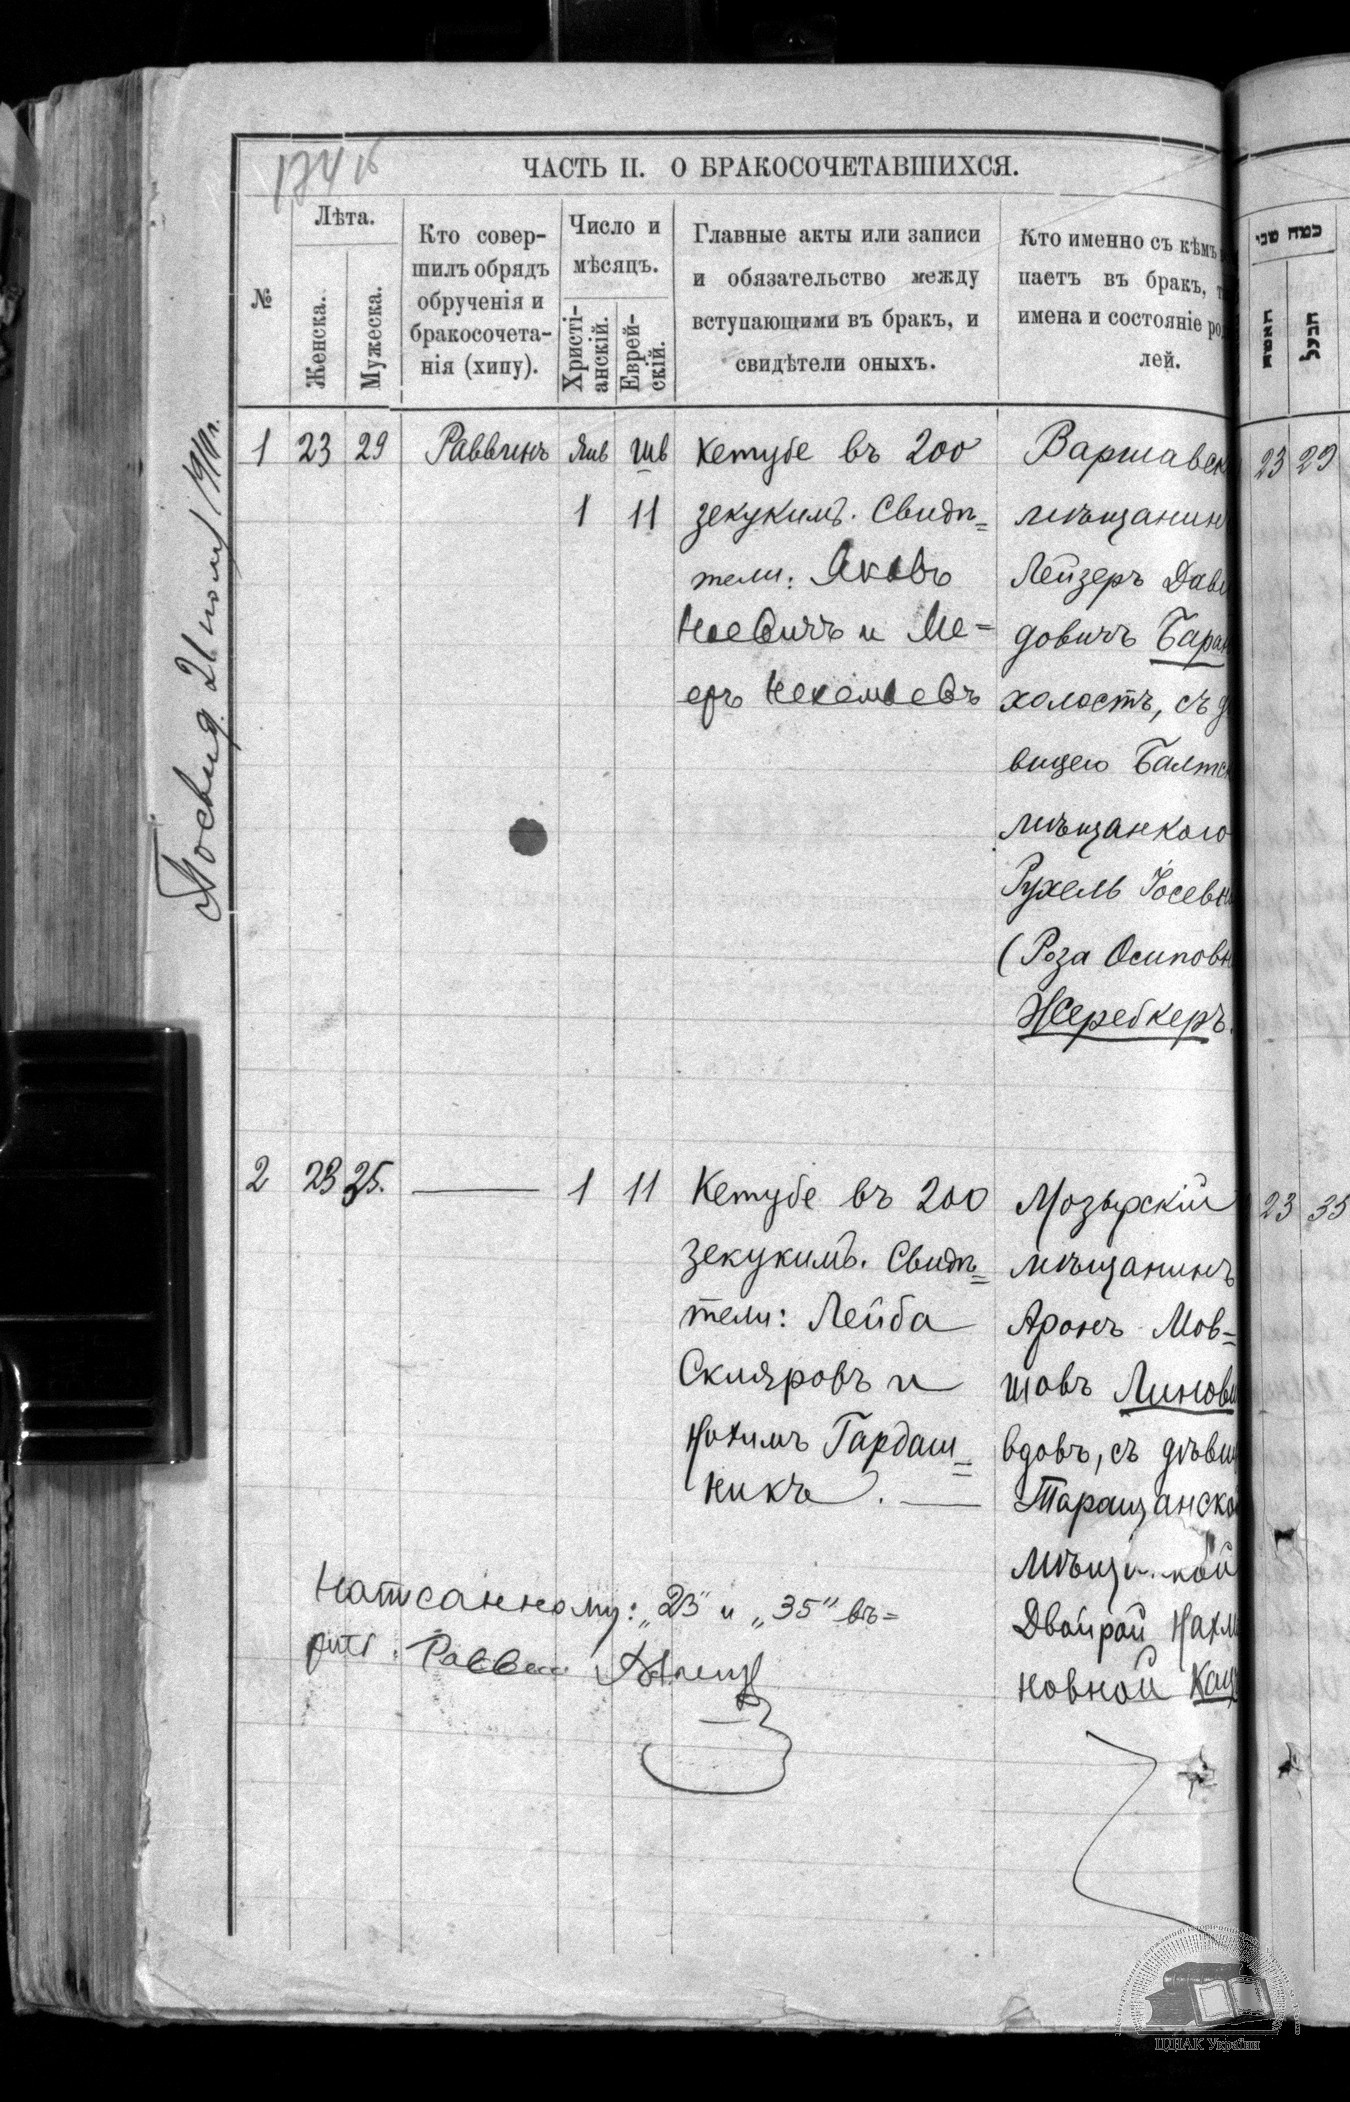 ЧАСТЬ II. О БРАКОСОЧЕТАВШИХСЯ.
№
Лѣта.
Женска.
Мужеска.
Кто совер-
шилъ обрядъ
обрученія и
бракосочета-
нія (хипу).
Число и
мѣсяцъ.
Христі-
анскій.
Еврей-
скій.
Главные акты или записи
и обязательство между
вступающими въ бракъ, и
свидѣтели оныхъ.
Кто именно съ кѣмъ
паетъ въ бракъ,
имена и состояніе ро
лей.
כמה שני
האשה
הבעל
21 1910 г.
1 23 29 Раввинъ Янв Шв
1 11
Кетубе въ 200
зекукимъ. Свидѣ=
тели: Яковъ
Ноевичъ и Ме=
еръ Некемьевъ
Варшавск
мѣщанин
Лейзеръ Дави
довичъ Баран
холостъ, съ д
вицею Балтск
мѣщанкою
Рухель Іосевн
(Роза Осиповн
Жеребкеръ.
23 29
2 23 35. — 1 11
Кетубе въ 200
зекукимъ. Свидѣ=
тели: Лейба
Скляровъ и
Нохимъ Гардаш=
никъ. —
Мозырскій
мѣщанинъ
Аронъ Мов=
шовъ Линови
вдовъ, съ дѣвиц
Таращанско
Двойрой Нахм
новной Кац
23 35
Написанному: „23" и „35" вѣ=
рить. Раввин
ЦДІАК України